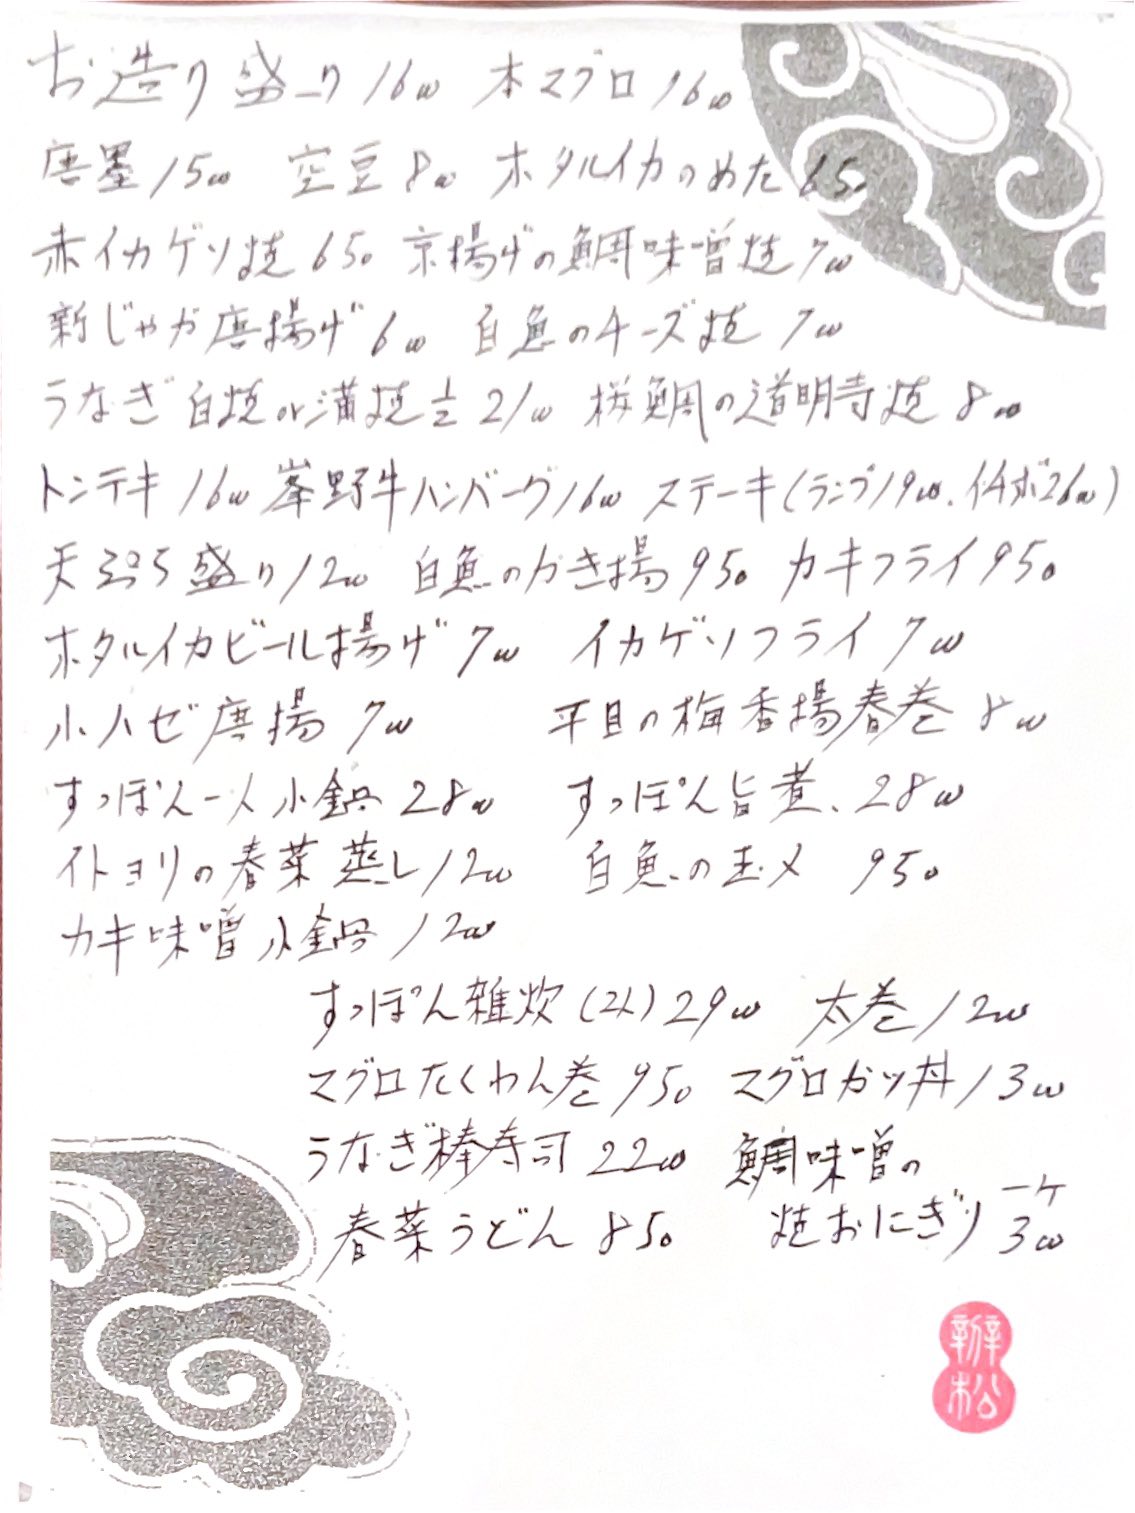 お造り盛り 1600 本マグロ 1600
唐墨 1500 空豆 800 ホタルイカのぬた 650
赤イカゲソ焼 650 京揚げの鯛味噌焼 700
新じゃが唐揚げ 600 白魚のチーズ焼 700
うなぎ白焼or蒲焼 1/2 2100 桜鯛の道明寺焼 800
トンテキ 1600 峯野牛ハンバーグ 1600 ステーキ(ランプ1900、イチボ2600)
天ぷら盛り 1200 白魚のかき揚 950 カキフライ 950
ホタルイカビール揚げ 700 イカゲソフライ 700
小ハゼ唐揚 700 平目の梅香揚春巻 800
すっぽん一人小鍋 2800 すっぽん旨煮 2800
イトヨリの春菜蒸し 1200 白魚の玉〆 950
カキ味噌小鍋 1200
すっぽん雑炊(2人) 2900 太巻 1200
マグロたくわん巻 950 マグロカツ丼 1300
うなぎ棒寿司 2200 鯛味噌の
春菜うどん 850 焼おにぎり 一ケ 300
辨松